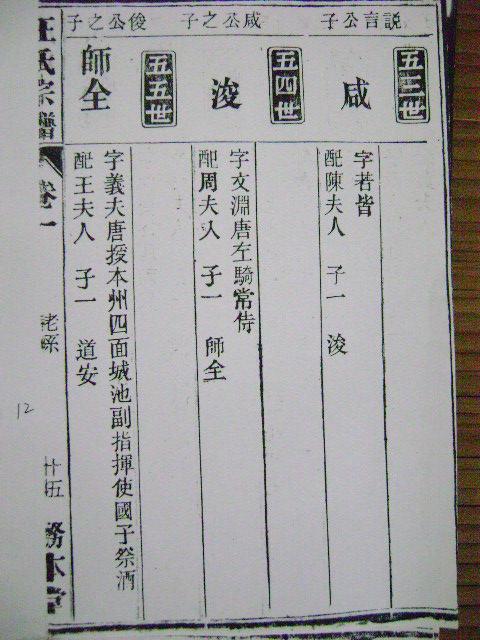 説言公子
五三世
咸
字若皆
配陳夫人 子一 浚
咸公之子
五四世
浚
字文淵唐左騎常侍
配周夫人 子一 師全
俊公之子
五五世
師全
字義夫唐授本州四面城池副指揮使國子祭酒
配王夫人 子一 道安
氏宗譜
卷一
廿五
務本堂
12